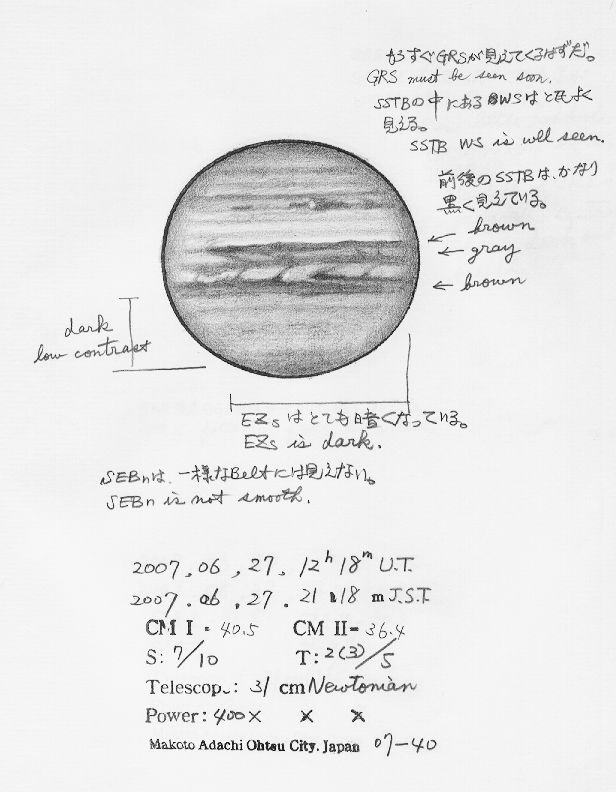 もうすぐGRSが見えてくるはずだ。
GRS must be seen soon.
SSTBの中にあるWSはとてもよく
見える。
SSTB WS is well seen.
前後のSSTBは、かなり
黒く見えている。
← brown
← gray
← brown
dark
low contrast
EZsはとても暗くなっている。
EZs is dark.
SEBnは、一様なBeltには見えない。
SEBn is not smooth.
2007.06.27.12h18m U.T.
2007.06.27.21h18m J.S.T.
CM I = 40.5 CM II = 36.4
S: 7/10 T: 2(3)/5
Telescop.: 31 cm Newtonian
Power: 400× × ×
Makoto Adachi Ohtsu City. Japan 07-40